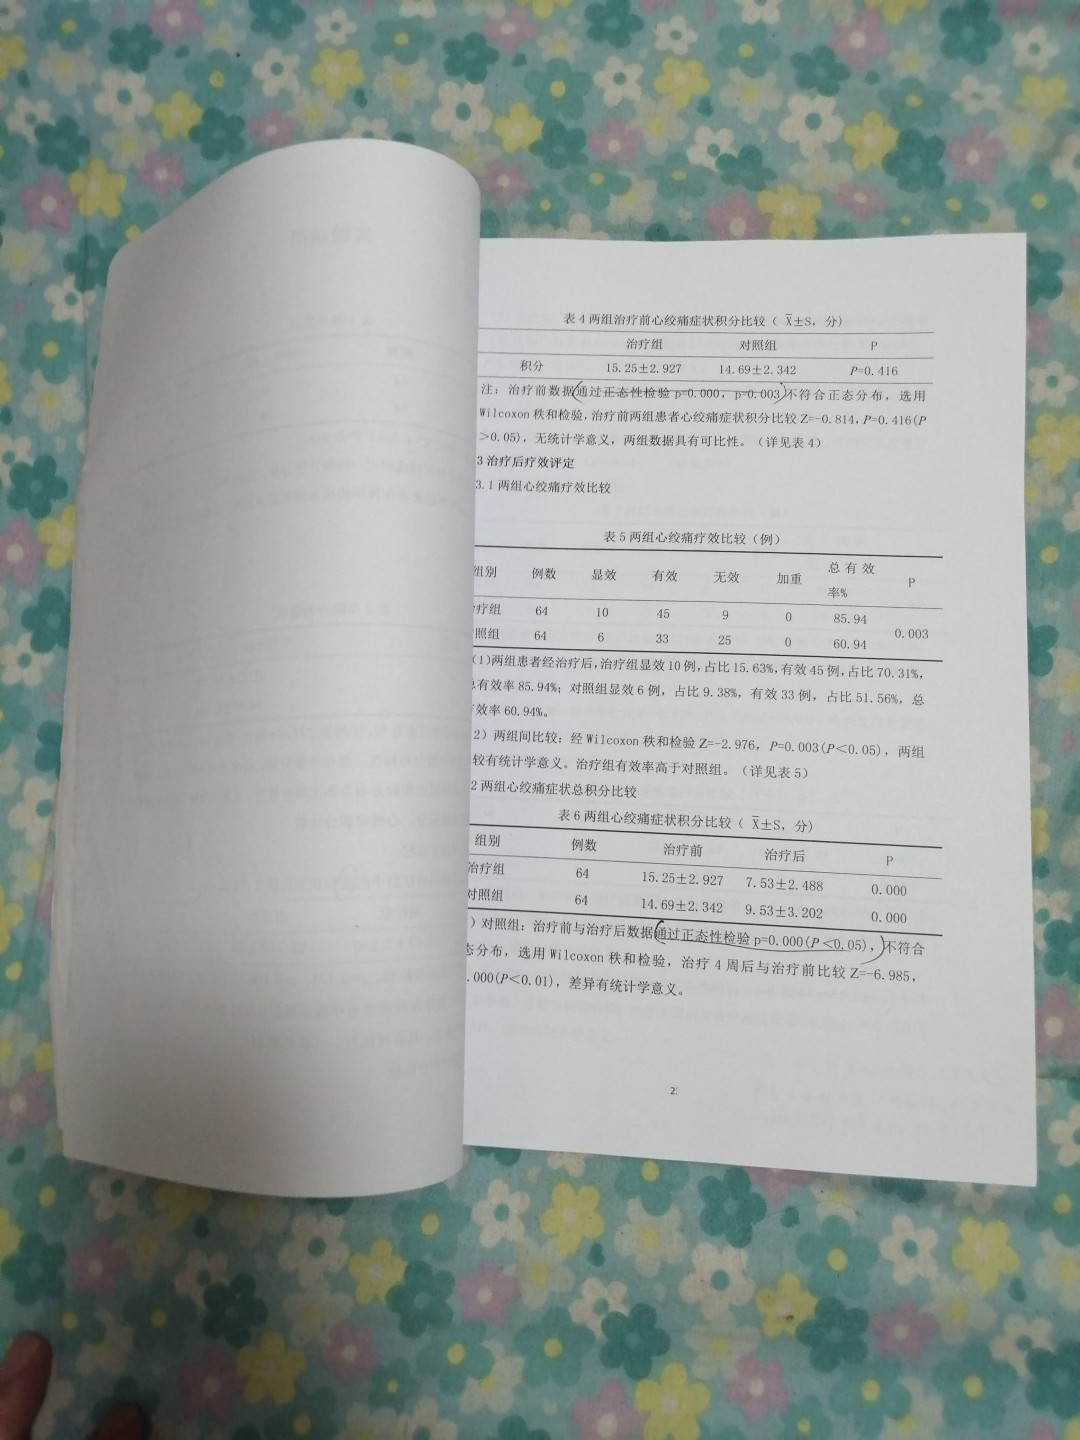 表4两组治疗前心绞痛症状积分比较（ X̄±S，分）
治疗组 对照组 P
积分 15.25±2.927 14.69±2.342 P=0.416
注：治疗前数据(通过正态性检验 p=0.000，p=0.003)不符合正态分布，选用
Wilcoxon秩和检验，治疗前两组患者心绞痛症状积分比较 Z=-0.814，P=0.416(P
＞0.05)，无统计学意义，两组数据具有可比性。（详见表4）
3 治疗后疗效评定
3.1 两组心绞痛疗效比较
表5 两组心绞痛疗效比较（例）
组别 例数 显效 有效 无效 加重 总有效率% P
疗组 64 10 45 9 0 85.94
照组 64 6 33 25 0 60.94 0.003
(1)两组患者经治疗后，治疗组显效10例，占比15.63%，有效45例，占比70.31%，
有效率85.94%；对照组显效6例，占比9.38%，有效33例，占比51.56%，总
效率60.94%。
2）两组间比较：经Wilcoxon秩和检验 Z=-2.976，P=0.003(P＜0.05)，两组
较有统计学意义。治疗组有效率高于对照组。（详见表5）
2 两组心绞痛症状总积分比较
表6 两组心绞痛症状积分比较（ X̄±S，分）
组别 例数 治疗前 治疗后 P
治疗组 64 15.25±2.927 7.53±2.488 0.000
对照组 64 14.69±2.342 9.53±3.202 0.000
）对照组：治疗前与治疗后数据(通过正态性检验 p=0.000(P＜0.05)，)不符合
态分布，选用Wilcoxon秩和检验，治疗4周后与治疗前比较 Z=-6.985，
.000(P＜0.01)，差异有统计学意义。